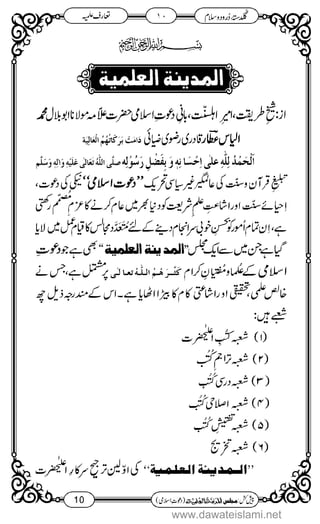 گلدستۂ دُرود وسلام ۱۰ تعارف علمیہ
بسم اللہ الرحمن الرحیم
المدینة العلمیة
از: شیخِ طریقت، امیرِ اہلسنّت، بانیِ دعوتِ اسلامی حضرت علّامہ مولانا ابو بلال محمد
الیاس عطّار قادری رضوی ضیائی دَامَتْ بَرَکَاتُہُمُ الْعَالِیَہ
اَلْحَمْدُ لِلّٰہِ عَلٰی اِحْسَانِہٖ وَ بِفَضْلِ رَسُوْلِہٖ صَلَّی اللّٰہُ تَعَالٰی عَلَیْہِ وَاٰلِہٖ وَسَلَّمَ
تبلیغِ قرآن وسنّت کی عالمگیر غیر سیاسی تحریک ’’دعوتِ اسلامی‘‘ نیکی کی دعوت،
اِحیائے سنّت اور اشاعتِ علمِ شریعت کو دنیا بھر میں عام کرنے کا عزمِ مُصمّم رکھتی
ہے، اِن تمام اُمور کو بحسنِ خوبی سر انجام دینے کے لئے مُتَعَدَّد مجالس کا قیام عمل میں لایا
گیا ہے جن میں سے ایک مجلس ’’المدینة العلمیة‘‘ بھی ہے جو دعوتِ
اسلامی کے عُلماء و مُفتیانِ کرام کَثَّرَھُمُ اللّٰہُ تعالٰی پر مشتمل ہے، جس نے
خالص علمی، تحقیقی اور اشاعتی کام کا بیڑا اٹھایا ہے۔ اس کے مندرجہ ذیل چھ
شعبے ہیں:
(۱) شعبۂ کُتُبِ اعلیٰ حضرت
(۲) شعبۂ تراجمِ کُتُب
(۳) شعبۂ درسی کُتُب
(۴) شعبۂ اصلاحی کُتُب
(۵) شعبۂ تفتیشِ کُتُب
(۶) شعبۂ تخریج
’’المدینة العلمیة‘‘ کی اوّلین ترجیح سرکارِ اعلیٰ حضرت
10 پیش کش: مجلس المدینة العلمیة (دعوتِ اسلامی)
www.dawateislami.net